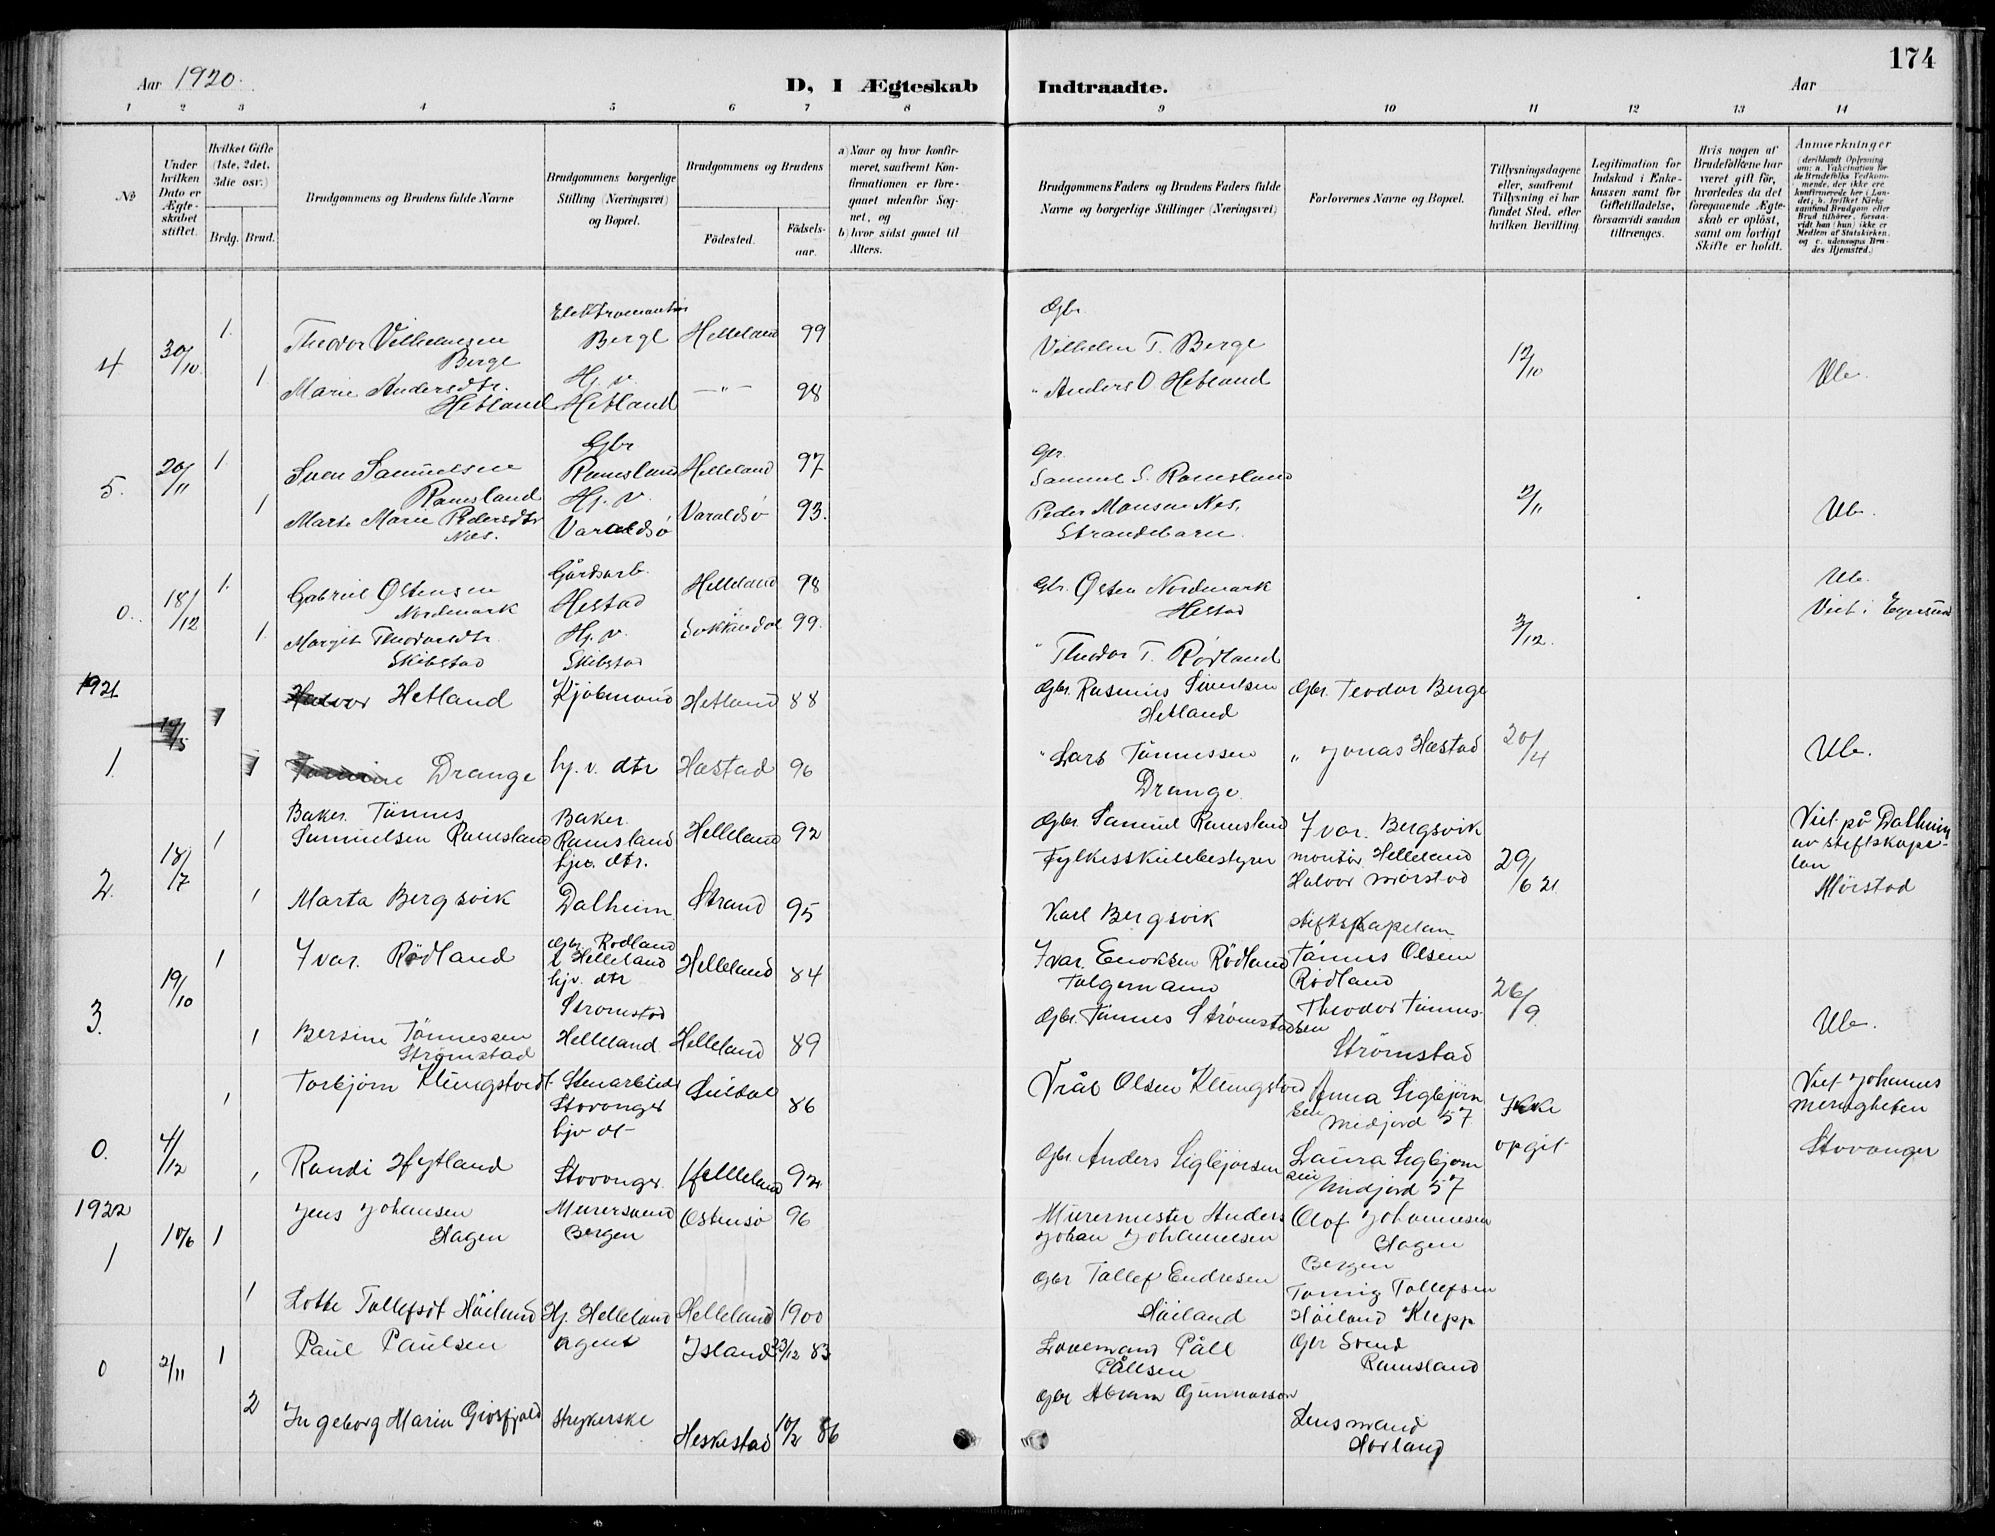 174
Aar 1920.
D, I Ægteskab Indtraadte.
Aar
1 2 3 4 5 6 7 8 9 10 11 12 13 14
No
Under hvilken Dato er Ægteskabet stiftet.
Hvilket Gifte (1ste, 2det, 3die osv.)
Brdg. Brud.
Brudgommens og Brudens fulde Navne
Brudgommens borgerlige Stilling (Næringsvei) og Bopæl.
Brudgommens og Brudens
Fødested. Fødselsaar.
a) Naar og hvor konfirmeret, saafremt Konfirmationen er foregaaet udenfor Sognet, og
b) hvor sidst gaaet til Alters.
Brudgommens Faders og Brudens Faders fulde Navne og borgerlige Stillinger (Næringsvei)
Forlovernes Navne og Bopæl.
Tillysningsdagene eller, saafremt Tillysning ei har fundet Sted, efter hvilken Bevilling.
Legitimation for Indskud i Enkekassen samt for Giftetilladelse, forsaavidt saadan tiltrænges.
Hvis nogen af Brudefolkene har været gift før, hvorledes da det foregaaende Ægteskab er opløst, samt om lovligt Skifte er holdt.
Anmærkninger
(deriblandt Oplysning om: a. Vakcination for de Brudefolks Vedkommende, der ikke ere konfirmerede her i Landet; b. hvilket Kirkesamfund Brudgom eller Brud tilhører, forsaavidt han (hun) ikke er Medlem af Statskirken, og c. udensogns Brudes Hjemsted.)
4 30/10 1. Theodor Vilhelmsen Berge Elektromontør Berge Helleland 99 Gbr. Vilhelm T. Berge 12/10
1. Marie Andersdtr. Hetland Hj. v. Hetland —"— 98 " Anders O Hetland
5. 20/11 1. Sven Samuelsen Ramsland Gbr Ramsland Helleland 97 Gbr. Samuel S. Ramsland 2/11
1 Marte Marie Pedersdtr Nes. Hj. v. Varaldsø Varaldsø 93. Peder Monsen Nes, Strandebarm.
0. 18/12 1. Gabriel Østensen Nordmark Gårdsarb. Hestad Helleland 98 Gbr. Østen Nordmark Hestad 3/12. Viet i Egersund
1. Margit Theodorsdtr. Skibstad Hj. v. Skibstad Sokkndal 99. " Theodor T. Rødland
1921
1. 14/5 1 Halvor Hetland Kjøbmand Hetland 88 Gbr. Rasmus Sivertsen Hetland Gbr. Teodor Berge 20/4
1 Drange hj. v. dtr Hæstad 96 " Lars Tønnessen Drange. " Jonas Hæstad
2. 18/7 1 Baker Tønnes Samuelsen Ramsland Baker. Ramsland Helleland 92 Gbr. Samuel Ramsland Ivar. Bergsvik montør Helleland 29/6 21. Viet på Dalheim av stiftskapelan Mørstad
1 Marta Bergsvik hjv. dtr. Dalheim Strand 95 Fylkesskulebestyrer Karl Bergsvik Halvor Mørstad stiftskapelan
3. 19/10 1 Ivar. Rødland Gbr. Rødland i Helleland Helleland 84 Ivar. Enoksen Rødland Tolgemann Tønnes Olsen Rødland 26/9.
1 Bersine Tønnessen Strømstad hjv. dtr Strømstad Helleland Helleland 89 Gbr. Tønnes Strømstad Theodor Tønnessen Strømstad
0. 4/12 1 Torbjørn Klungstvedt Stenarbeider Stavanger Suldal 86 Vrål Olsen Klungstved Anna Sigbjørnsen Midjord 57 Ikke opgit Viet Johannes menigheten Stavanger
1 Randi Hytland hjv dt Stavanger Helleland 92 Gbr Anders Sigbjørnsen Laura Sigbjørnsen Midjord 57
1922
1 10/6 1 Jens Johansen Hagen Murersvend Bergen Østensø 96 Murermester Anders Johan Johannesen Olaf Johannesen Hagen Bergen
1 Lotte Tollefsdt Høiland Hj. Helleland Helleland 1900 Gbr Tollef Endresen Høiland Tollefsen Høiland Klepp
0 2/11 1 Paul Paulsen agent Island 23/12 83 Påll Pållsen Gbr Svend Ramsland
2 Ingeborg Marie Strykerske Heskestad 10/2 86 Gbr Abram Gunnarson Lensmand Hovland